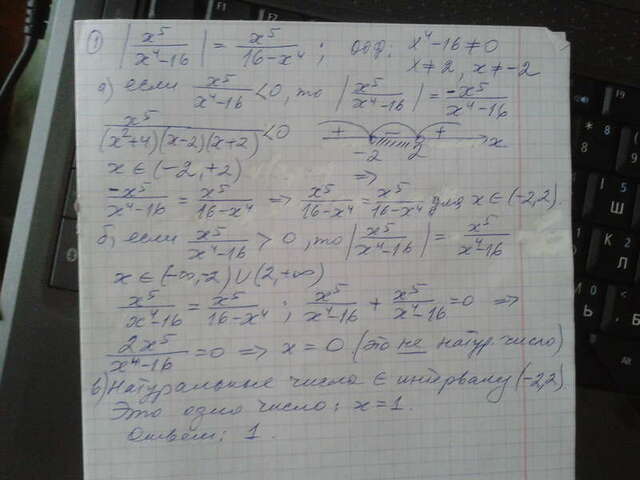 ① |x⁵/(x⁴-16)| = x⁵/(16-x⁴) ; ОДЗ: x⁴-16≠0
x≠2, x≠-2
а) если x⁵/(x⁴-16) <0, то |x⁵/(x⁴-16)| = -x⁵/(x⁴-16)
x⁵/((x²+4)(x-2)(x+2)) <0 + - + -2 2 x
x ∈ (-2, +2) ⇒
-x⁵/(x⁴-16) = x⁵/(16-x⁴) ⇒ x⁵/(16-x⁴) = x⁵/(16-x⁴) для x ∈ (-2,2).
б) если x⁵/(x⁴-16) > 0, то |x⁵/(x⁴-16)| = x⁵/(x⁴-16)
x ∈ (-∞,-2) ∪ (2,+∞)
x⁵/(x⁴-16) = x⁵/(16-x⁴) ; x⁵/(x⁴-16) + x⁵/(x⁴-16) =0 ⇒
2x⁵/(x⁴-16) =0 ⇒ x=0 (это не натур. число)
в) Натуральные числа ∈ интервалу (-2,2).
Это одно число: x=1.
Ответ: 1.
5
Ш
K
Л